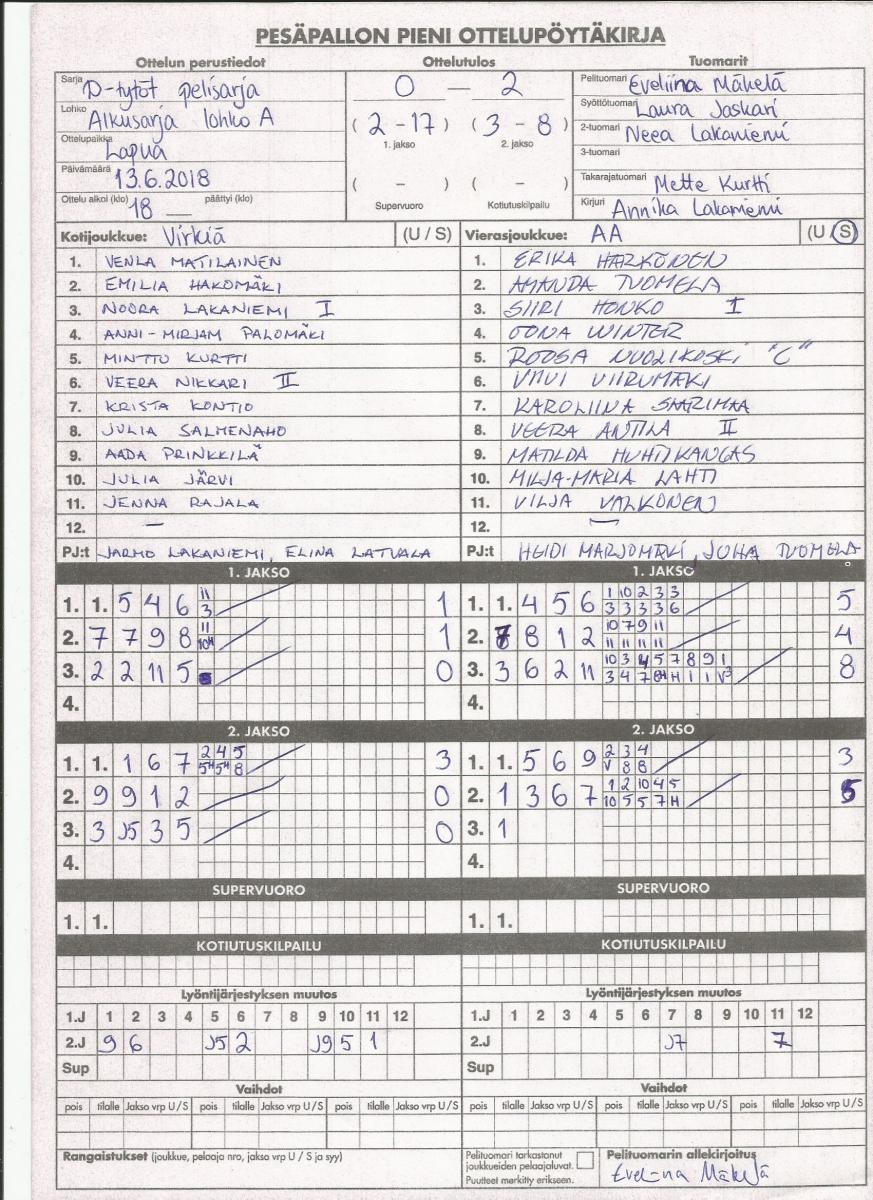 PESÄPALLON PIENI OTTELUPÖYTÄKIRJA
Ottelun perustiedot
Sarja D-tytöt pelisarja
Lohko Alkusarja lohko A
Ottelupaikka Lapua
Päivämäärä 13.6.2018
Ottelu alkoi (klo) 18 — päättyi (klo)
Ottelutulos
0 — 2
( 2 - 17 ) ( 3 - 8 )
1. jakso 2. jakso
( - ) ( - )
Supervuoro Kotiutuskilpailu
Tuomarit
Pelituomari Eveliina Mäkelä
Syöttötuomari Laura Jaskari
2-tuomari Neea Lakaniemi
3-tuomari
Takarajatuomari Mette Kurtti
Kirjuri Annika Lakaniemi
Kotijoukkue: Virkiä (U / S)
1. VENLA MATILAINEN
2. EMILIA HAKOMÄKI
3. NOORA LAKANIEMI I
4. ANNI-MIRJAM PALOMÄKI
5. MINTTU KURTTI
6. VEERA NIKKARI II
7. KRISTA KONTIO
8. JULIA SALMENAHO
9. AADA PRINKKILÄ
10. JULIA JÄRVI
11. JENNA RAJALA
12. —
PJ:t JARMO LAKANIEMI, ELINA LATVALA
Vierasjoukkue: AA (U / S)
1. ERIKA HARKONEN
2. AMANDA TUOMELA
3. SIIRI HONKO I
4. OONA WINTER
5. ROOSA NUOLIKOSKI "C"
6. VIIVI VIIRUMAKI
7. KAROLIINA SAARIMAA
8. VEERA ANTILA II
9. MATILDA HUHTIKANGAS
10. MILJA-MARIA LAHTI
11. VILJA VALKONEN
12. —
PJ:t HEIDI MARJOMÄKI, JUHA TUOMELA
1. JAKSO
1. 1. 5 4 6 11 1
3
2. 7 7 9 8 11 1
3. 2 2 11 5 0
4.
1. JAKSO
1. 1. 4 5 6 1 10 2 3 3 5
3 3 3 3 6
2. 7 8 1 2 10 7 9 11 4
11 11 11 11
3. 3 6 2 11 10 3 4 5 7 8 9 1 8
4.
2. JAKSO
1. 1. 1 6 7 2 4 5 3
5H 5H 8
2. 9 9 1 2 0
3. 3 J5 3 5 0
4.
2. JAKSO
1. 1. 5 6 9 2 3 4 3
V 8 8
2. 1 3 6 7 1 2 10 4 5 5
10 5 5 7 H
3. 1
4.
SUPERVUORO
1. 1.
SUPERVUORO
1. 1.
KOTIUTUSKILPAILU
KOTIUTUSKILPAILU
Lyöntijärjestyksen muutos
1.J 1 2 3 4 5 6 7 8 9 10 11 12
2.J 9 6 J5 2 J9 5 1
Sup
Lyöntijärjestyksen muutos
1.J 1 2 3 4 5 6 7 8 9 10 11 12
2.J J7 7
Sup
Vaihdot
pois tilalle Jakso vrp U / S pois tilalle Jakso vrp U / S pois tilalle Jakso vrp U / S
Vaihdot
pois tilalle Jakso vrp U / S pois tilalle Jakso vrp U / S pois tilalle Jakso vrp U / S
Rangaistukset (joukkue, pelaaja nro, jakso vrp U / S ja syy)
Pelituomari tarkastanut
joukkueiden pelaajaluvat.
Puutteet merkitty erikseen.
Pelituomarin allekirjoitus
Eveliina Mäkelä